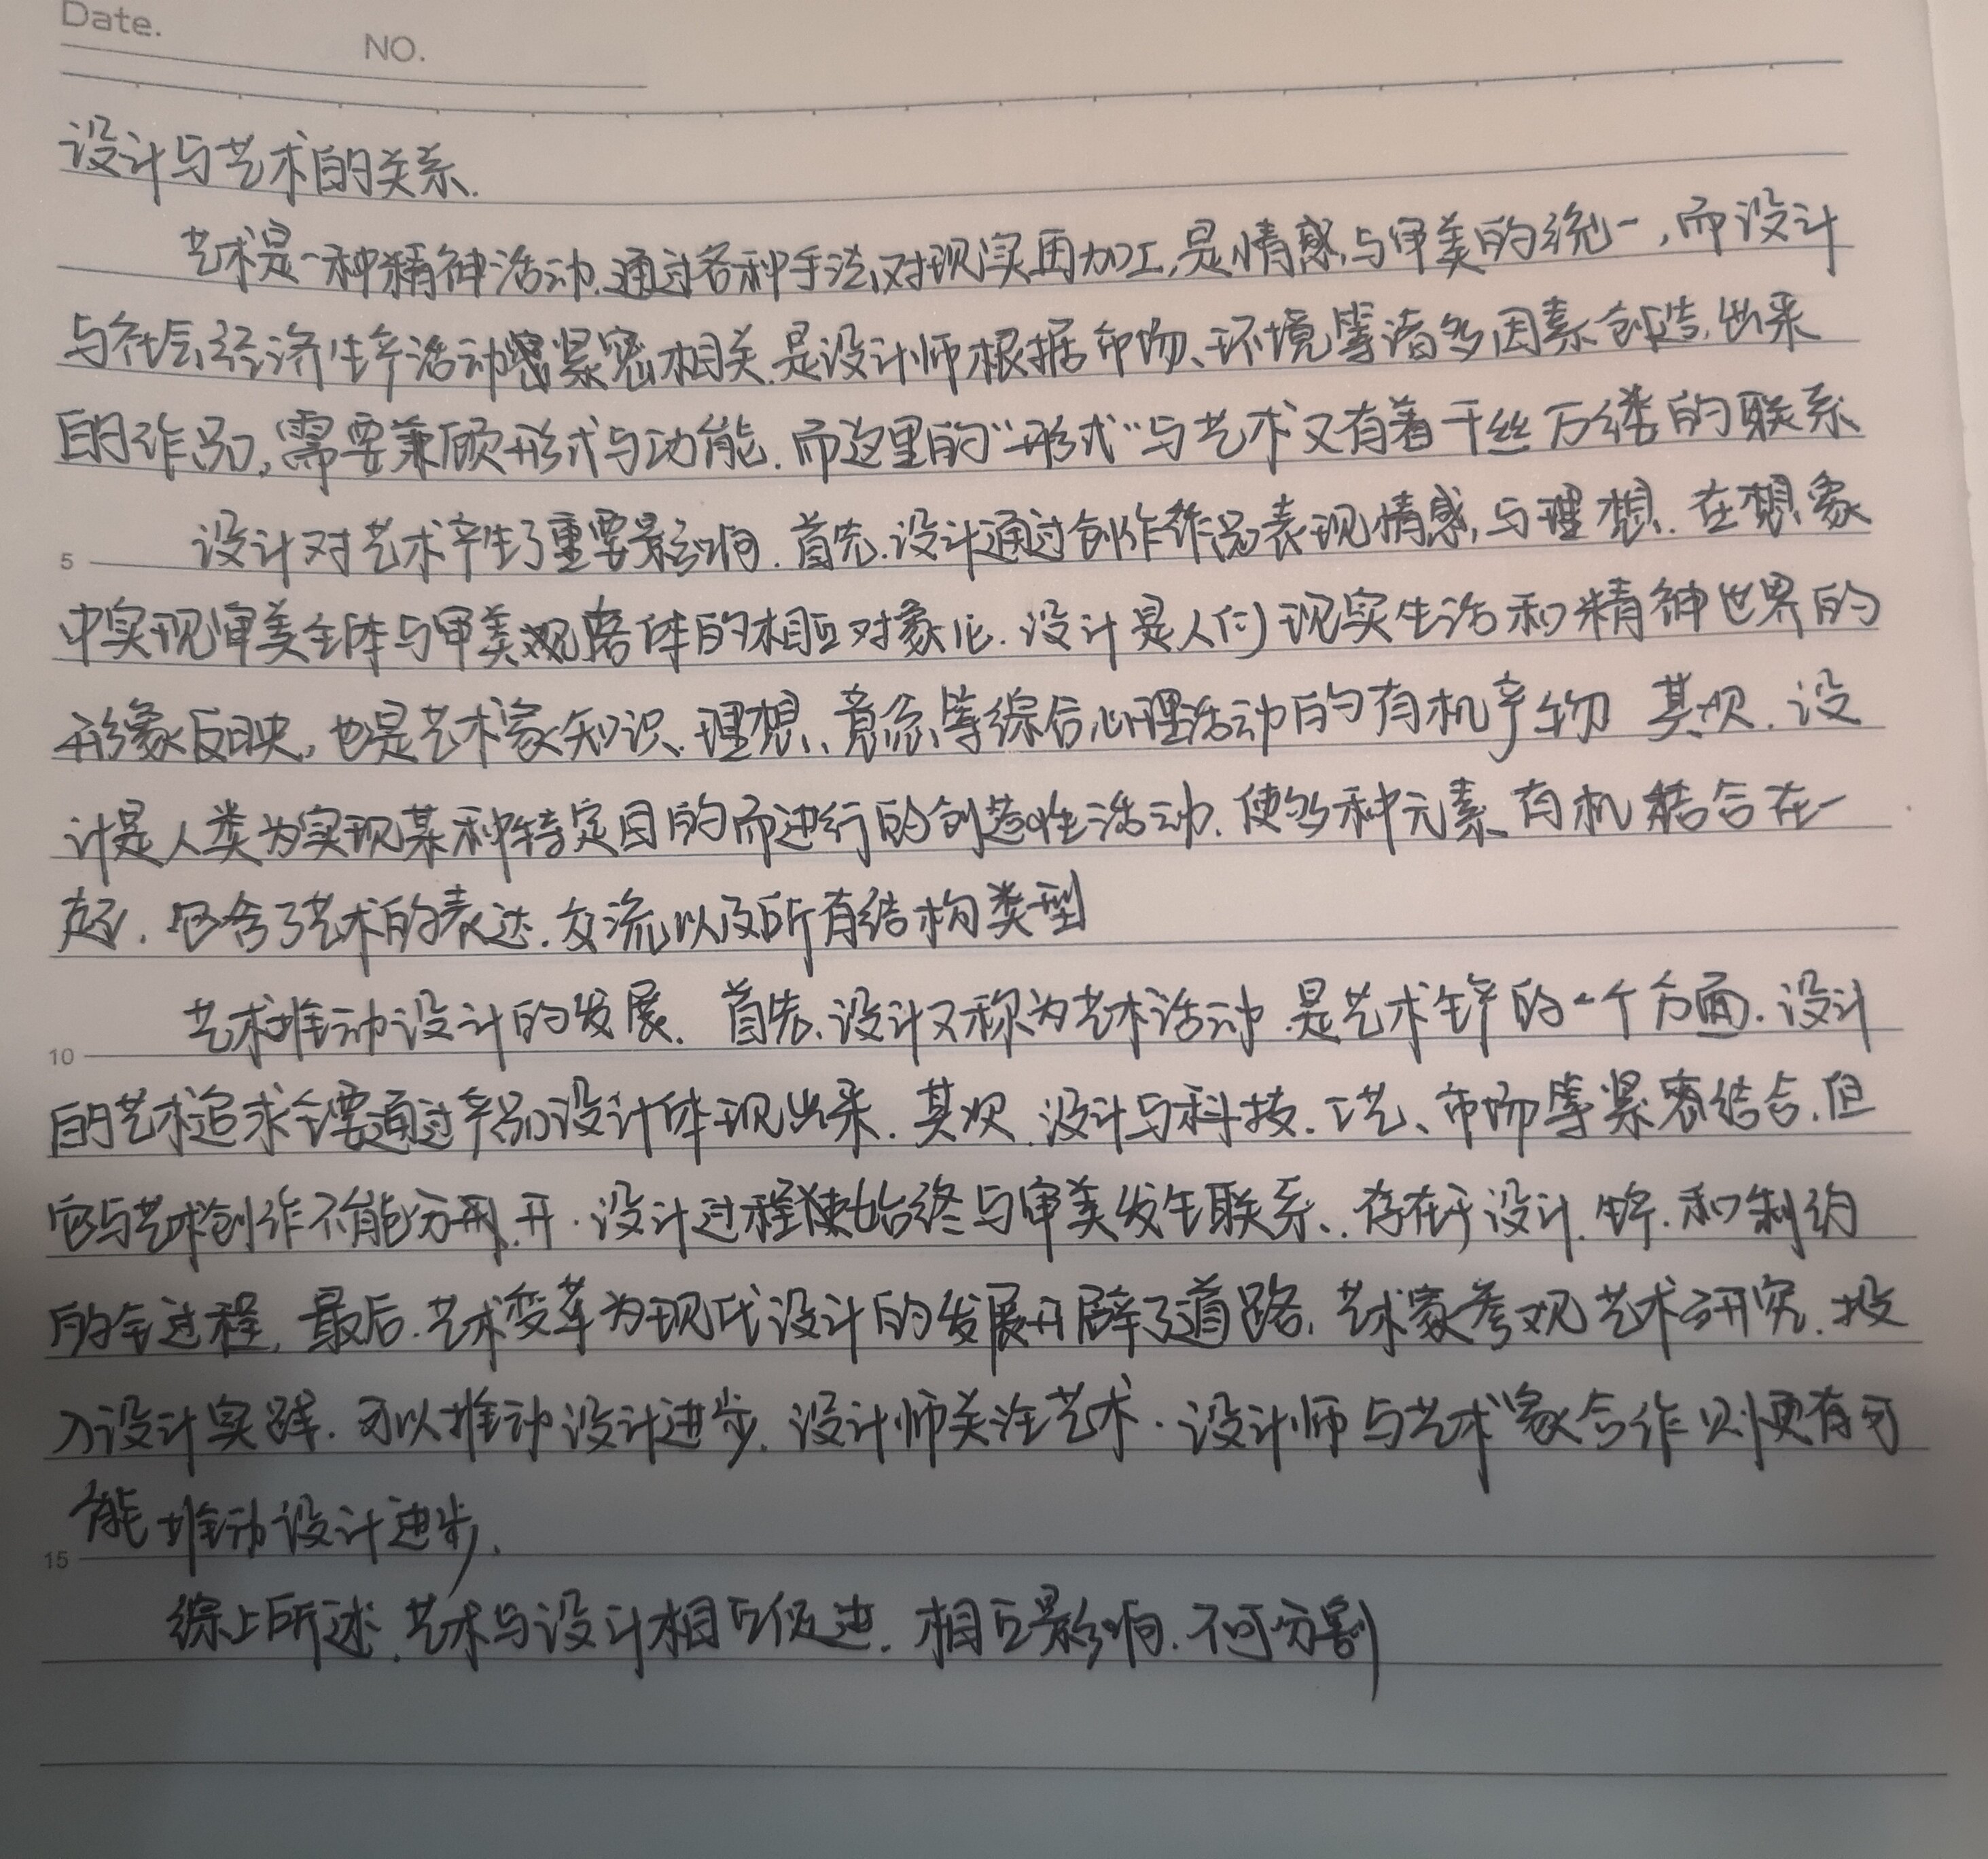 Date.
NO.
设计与艺术的关系.
艺术是一种精神活动.通过各种手法,对现实再加工,是情感与审美的统一,而设计
与社会经济生产活动紧密相关.是设计师根据市场、环境等诸多因素创造出来
的作品,需要兼顾形式与功能.而这里的“形式”与艺术又有着千丝万缕的联系
5
设计对艺术产生了重要影响.首先.设计通过创作作品表现情感与理想.在想象
中实现审美主体与审美客体的相互对象化.设计是人们现实生活和精神世界的
形象反映,也是艺术家知识、理想、意念等综合心理活动的有机产物 其次.设
计是人类为实现某种特定目的而进行的创造性活动.使多种元素有机结合在一
起.包含了艺术的表达.交流以及所有结构类型
艺术推动设计的发展. 首先.设计又称为艺术活动.是艺术生产的一个方面.设计
10
的艺术追求主要通过产品设计体现出来.其次.设计与科技.工艺、市场等紧密结合.但
它与艺术创作不能分割开.设计过程始终与审美发生联系.存在于设计.生产.和制约
的全过程.最后.艺术变革为现代设计的发展开辟了道路.艺术家参观艺术研究.投
入设计实践.可以推动设计进步.设计师关注艺术.设计师与艺术家合作则更有可
能推动设计进步.
15
综上所述.艺术与设计相互促进.相互影响.不可分割